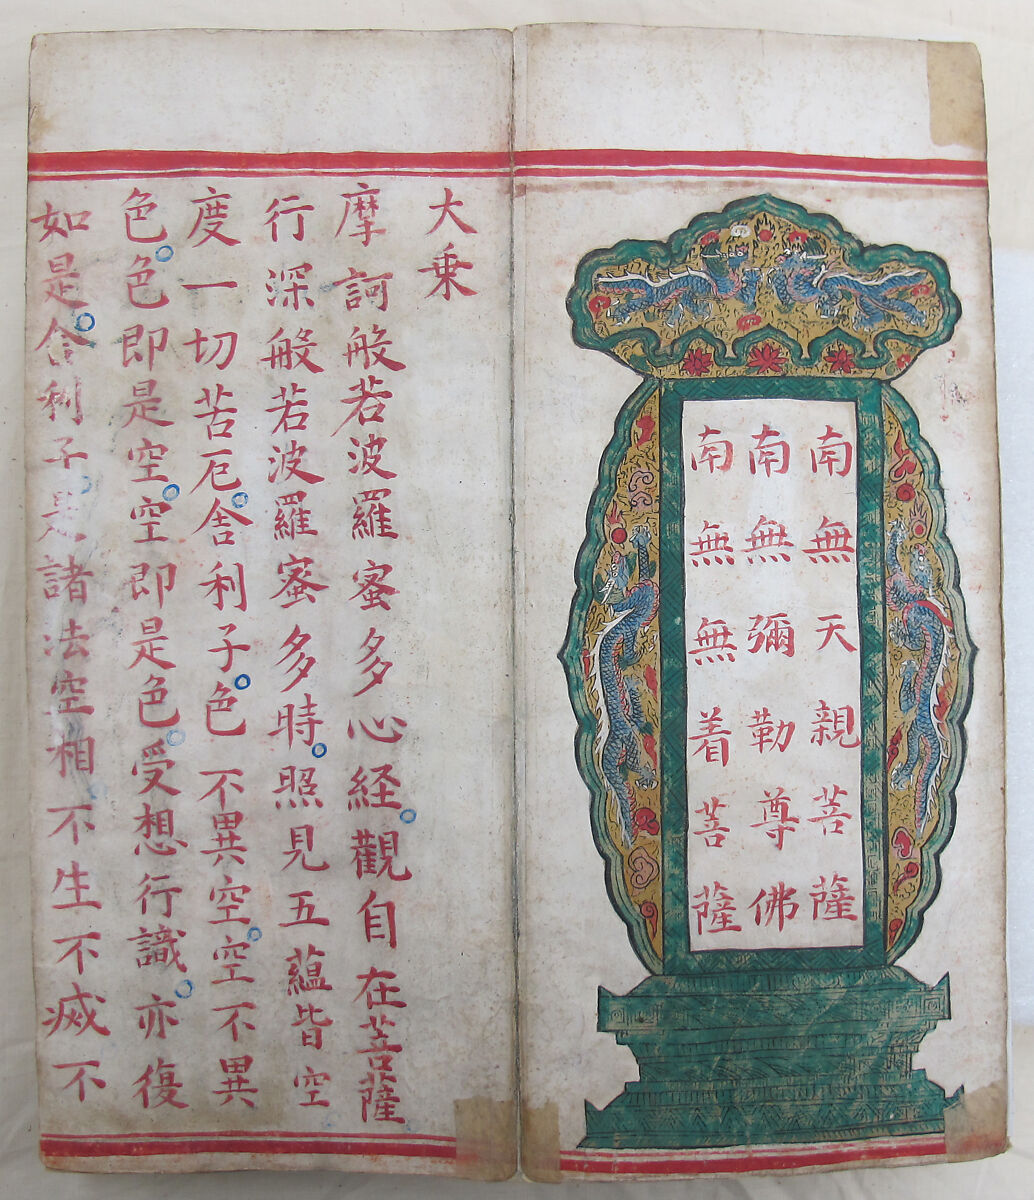 南無天親菩薩
南無彌勒尊佛
南無無着菩薩
大乗
摩訶般若波羅蜜多心経。觀自在菩薩
行深般若波羅蜜多時。照見五蘊皆空
度一切苦厄。舍利子。色不異空。空不異
色。色即是空。空即是色。受想行識。亦復
如是。舍利子。是諸法空相。不生不滅不